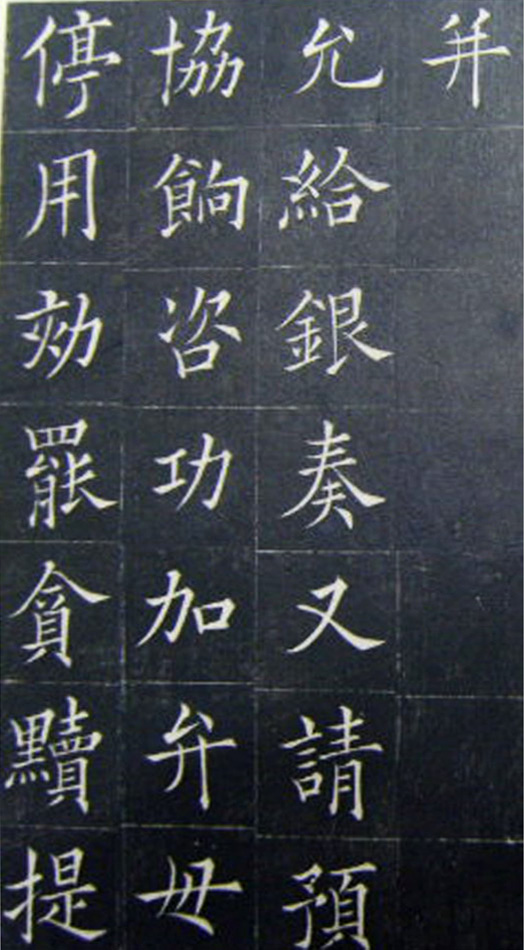 并
允給銀奏又請預
協餉咨功加弁毋
停用効罷貪黷提